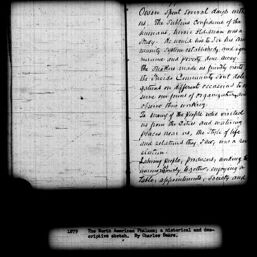 Owen spent several days with
us. The sublime confidence of the
humane, heroic old man was a
study. He would have to see his Com-
munity system established, and
and poverty done away.
The Shakers made us friendly visits
the Oneida Community sent dele-
gations on different occasions to
some points of organization,
observe this working.
To many of the people who visited
us from the cities and watering
places near us, the style of life
and relations they saw, was a
Laboring people, producers, working
together, enjoying a
table, appointments, society and
1879 The North American Phalanx; a historical and des-
criptive sketch. By Charles Sears.